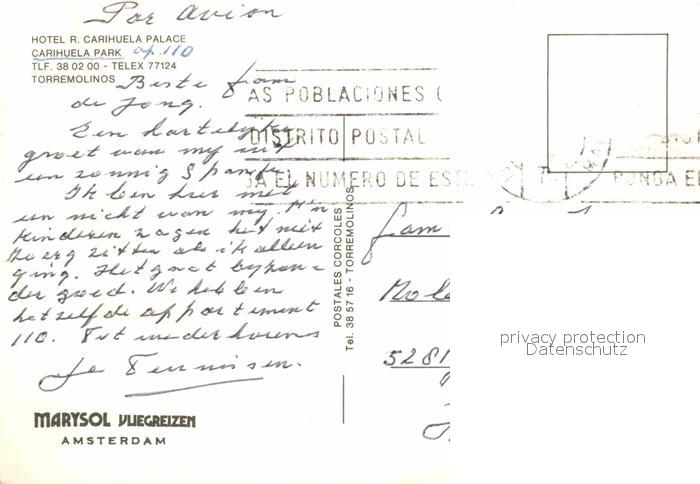 Par Avion
HOTEL R. CARIHUELA PALACE
CARIHUELA PARK ap. 110
TLF. 38 02 00 - TELEX 77124
TORREMOLINOS
Beste fam
de Jong.
Een hartelyke
groet van my uit
een zonnig Spanje.
Ik ben hier met
een nicht van my. M'n
kinderen zagen het niet
zo erg zitten als ik alleen
ging. Het gaat byzon=
der goed. We hebben
hetzelfde appartement
110. Tot wederhorens
Je Teunissen.
MARYSOL VLIEGREIZEN
AMSTERDAM
POSTALES CORCOLES
Tel. 38 57 16 - TORREMOLINOS
AS POBLACIONES (
DISTRITO POSTAL
A EL NUMERO DE ESTE
PONGA EL
fam
Mole
5281
privacy protection
Datenschutz